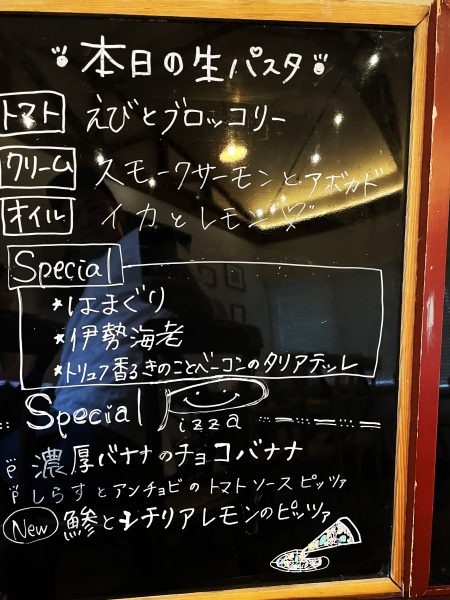 本日の生パスタ
トマト えびとブロッコリー
クリーム スモークサーモンとアボカド
オイル イカとレモン
Special
*はまぐり
*伊勢海老
*トリュフ香るきのことベーコンのタリアテッレ
Special Pizza
濃厚バナナのチョコバナナ
しらすとアンチョビのトマトソースピッツァ
New 鯵とシチリアレモンのピッツァ